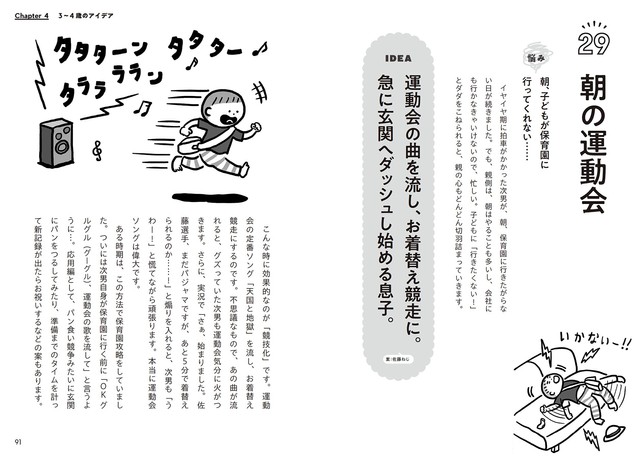 Chapter 4 3〜4歳のアイデア
29
朝の運動会
悩み
朝、子どもが保育園に
行ってくれない……
イヤイヤ期に拍車がかかった次男が、朝、保育園に行きたがらな
い日が続きました。でも、親側は、朝はやることも多いし、会社に
も行かなきゃいけないので、忙しい。子どもに「行きたくない！」
とダダをこねられると、親の心もどんどん切羽詰まっていきます。
いかない〜!!
IDEA
運動会の曲を流し、お着替え競走に。
急に玄関へダッシュし始める息子。
案：佐藤ねじ
タタターン
タタター
タララ
ラララン
こんな時に効果的なのが「競技化」です。運動
会の定番ソング「天国と地獄」を流し、お着替え
競走にするのです。不思議なもので、あの曲が流
れると、グズっていた次男も運動会気分に火がつ
きます。さらに、実況で「さぁ、始まりました。佐
藤選手、まだパジャマですが、あと5分で着替え
られるのか……！」と煽りを入れると、次男も「う
わー！」と慌てながら頑張ります。本当に運動会
ソングは偉大です。
ある時期は、この方法で保育園攻略をしていまし
た。ついには次男自身が保育園に行く前に「OKグ
ルグル（グーグル）、運動会の歌を流して」と言うよ
うに…。応用編として、パン食い競争みたいに玄関
にパンをつるしてみたり、準備までのタイムを計っ
て新記録が出たらお祝いするなどの案もあります。
91